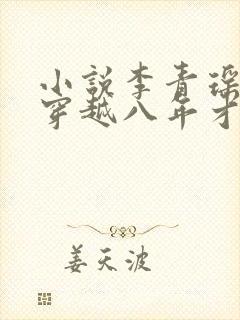 小说李青瑶
穿越八年才
姜天波